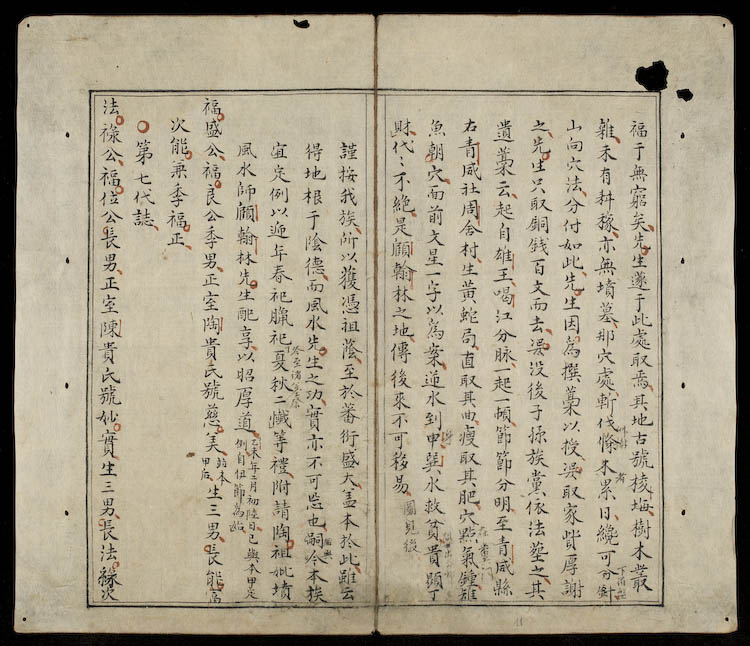 福于無窮矣先生遂于此處取焉其地古號棱塸樹木叢
雜未有耕稼亦無墳墓那穴處斬伐條木累日纔可分針
山向穴法分付如此先生因為撰藁以授畀取家貲厚謝
之先生只取銅錢百文而去畀沒後子孫族黨依法塟之其
遺藁云起自雄王喝江分脉一起一頓節節分明至青威縣
右青威社周舍村生黃蛇局直取其曲瘦取其肥穴點氣鍾雄
魚朝穴而前文星一字以為案逆水到申巽水救貧貴顯丁
財代〻不絕是顧翰林之地傳後來不可移易圖見後
謹按我族所以獲憑祖蔭至於蕃衍盛大盖本於此雖云
得地根于陰德而風水先生之功實亦不可忘也嗣今本族
宜定例以遞年春祀臘祀夏秋二懺等禮附請陶祖妣墳
風水師顧翰林先生配享以昭厚道
福盛公福良公季男正室陶貴氏號慈美生三男長能富
次能兼季福正
第七代誌
法祿公福位公長男正室陳貴氏號妙實生三男長法緣次